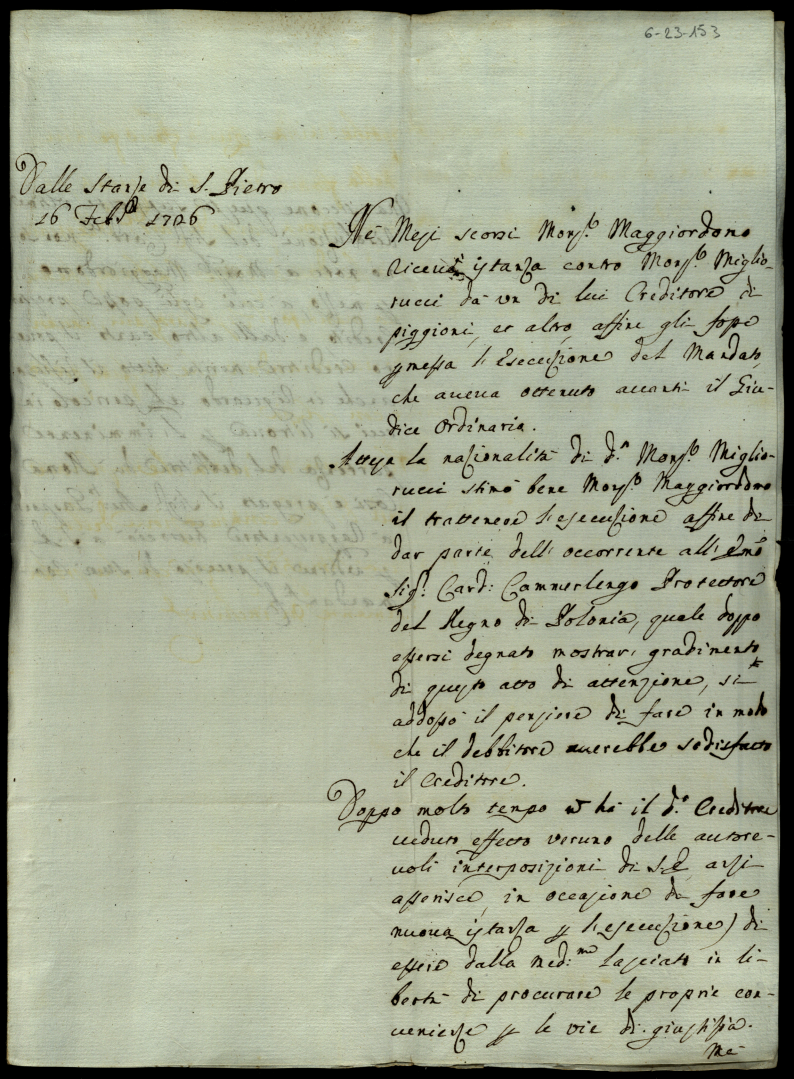 6-23-153
Dalle Stanze di S. Pietro
16 Febb.º 1726
Nè Mesi scorsi Mons.e Maggiordomo
riceuè istanza contro Mons.e Miglio-
rucci da vn di lui Creditore di
piggioni, et altro, affine gli fosse
permessa l'Esecuzione del Mandato,
che aueua ottenuto auanti il Giu-
dice Ordinario.
Attesa la nazionalità di d.º Mons.e Miglio-
rucci stimò bene Mons.e Maggiordomo
il trattenere l'esecuzione affine di
dar parte dell'occorrente all'Emo
Sig.r Card: Cammerlengo Protettore
del Regno di Polonia, quale doppo
essersi degnato mostrar gradimento
di questo atto di attenzione, si
addossò il pensiere di fare in modo
che il debbitore auerebbe sodisfatto
il Creditore.
Doppo molto tempo non hà il d.º Creditore
ueduto effetto veruno delle autore-
uoli interposizioni di S.E, anzi
asserisce, in occasione di fare
nuoua istanza per l'esecuzione) di
essere dalla med:ma lasciato in li-
bertà di procurare le proprie con-
uenienze per le vie di giustizia.
Me-